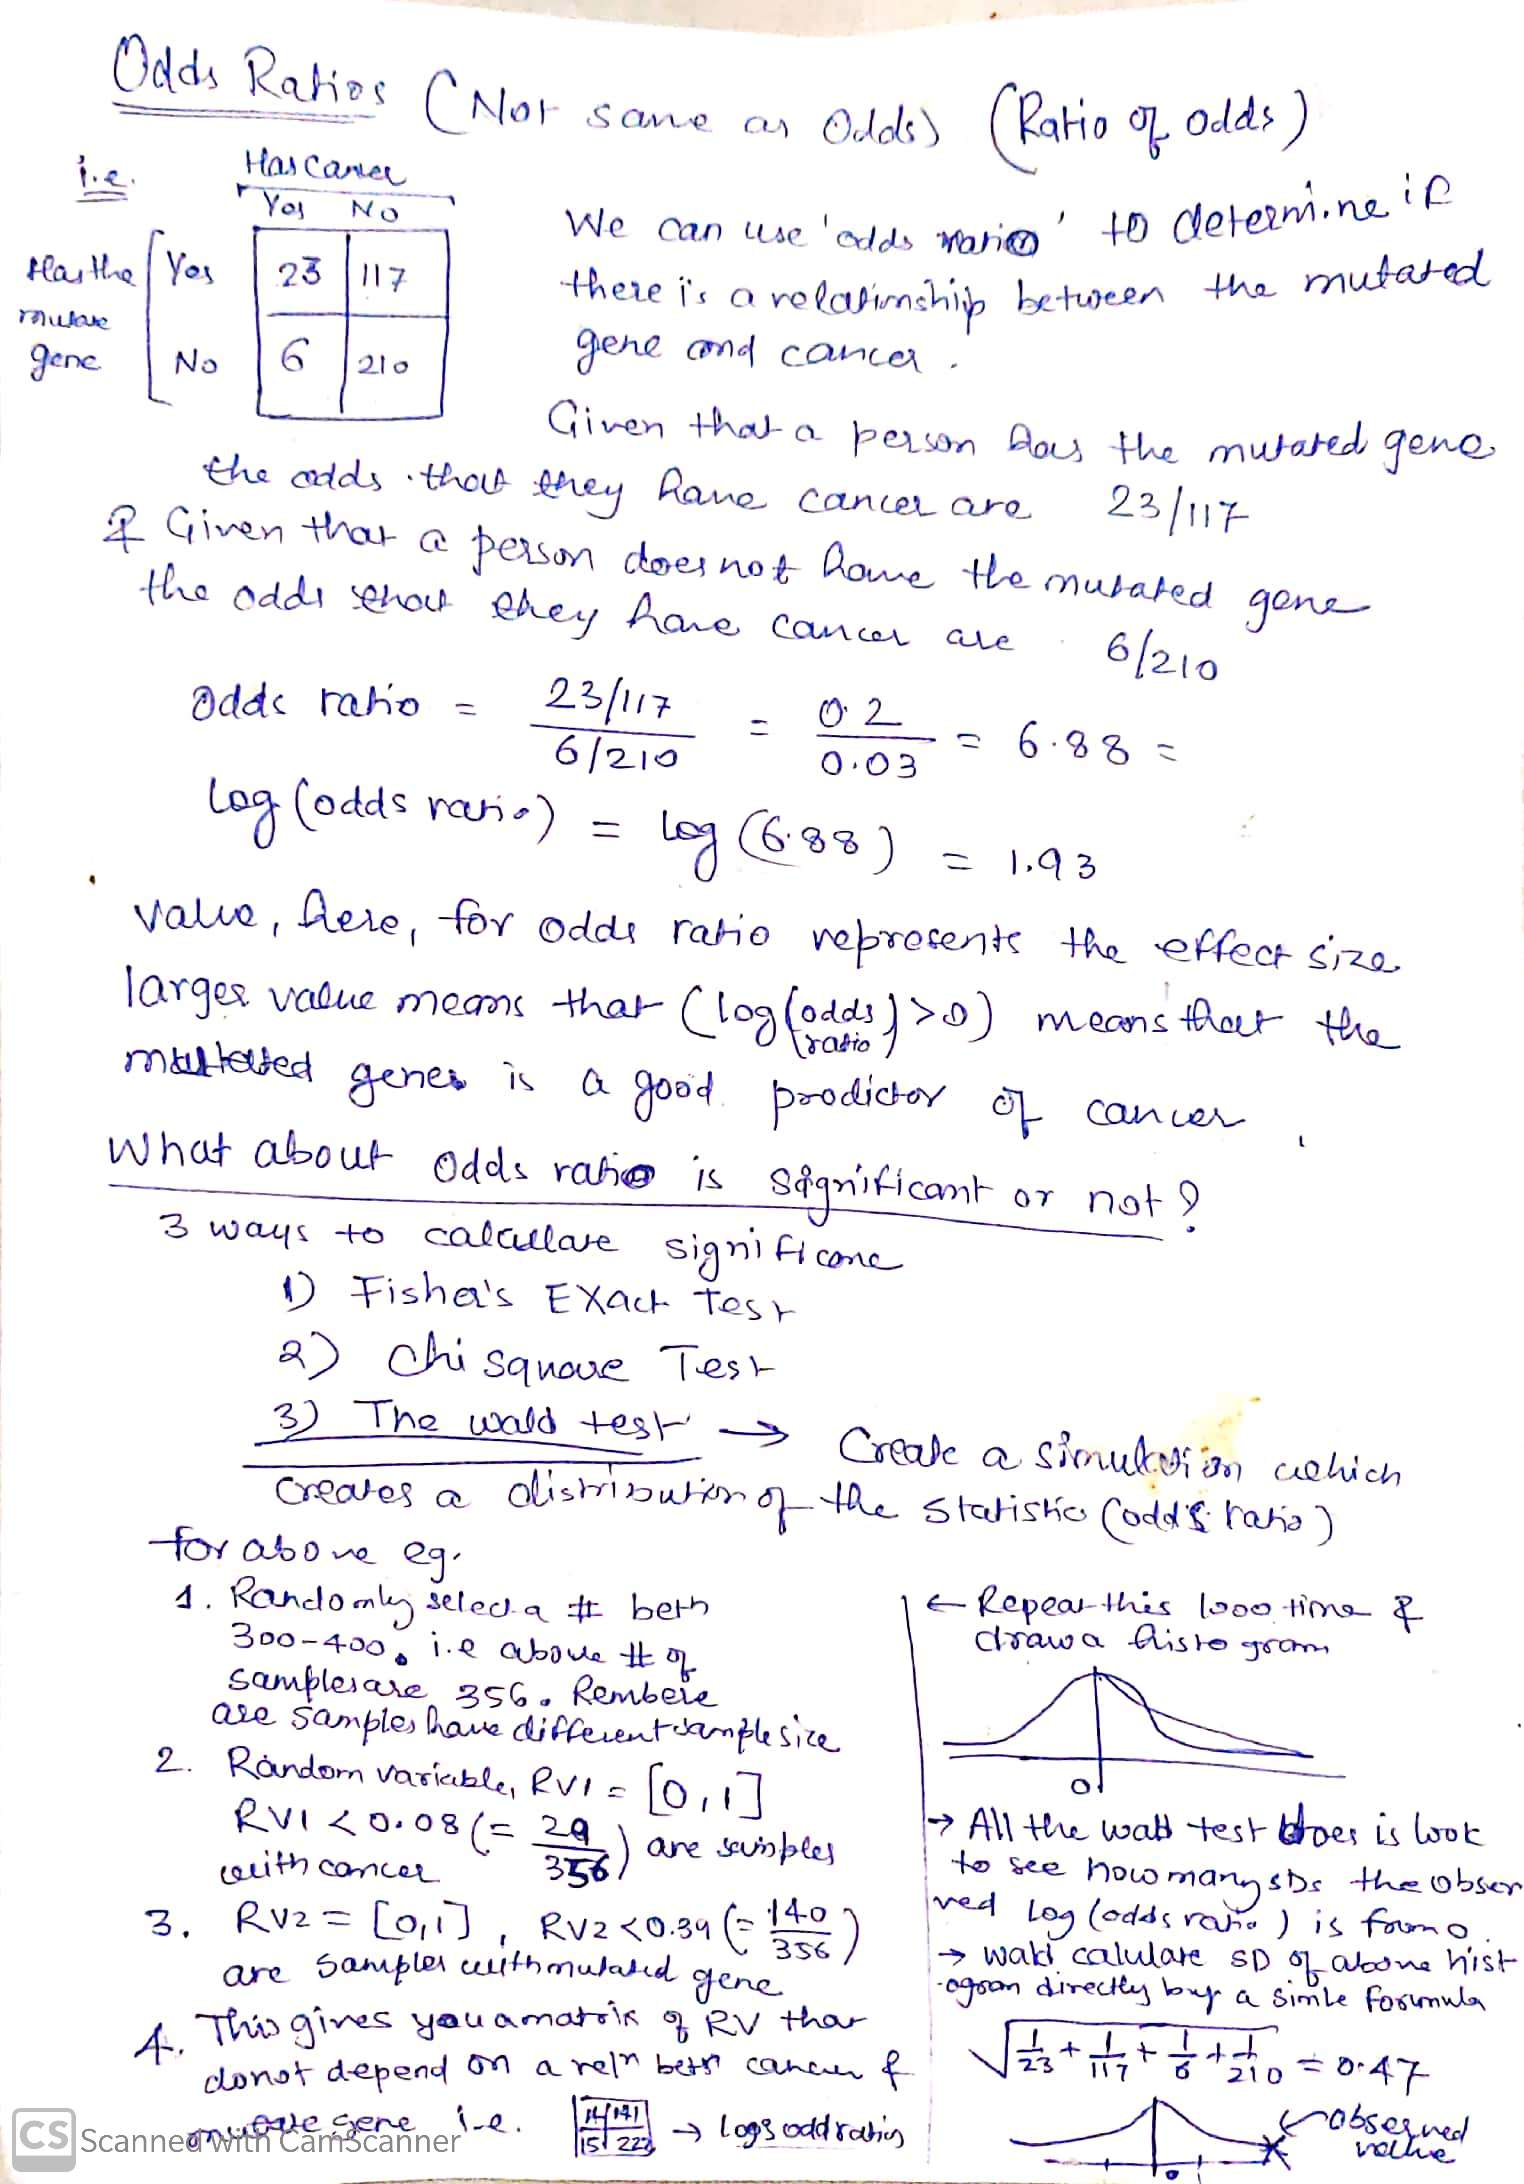 Odds Ratios (Not same as Odds) (Ratio of odds)
i.e.
Has Cancer
Yes No
Has the
mutate
gene
Yes 23 117
No 6 210
We can use 'odds ratio' to determine if
there is a relationship between the mutated
gene and cancer.
Given that a person has the mutated gene
the odds that they have cancer are 23/117
& Given that a person does not have the mutated gene
the odds that they have cancer are 6/210
Odds ratio = 23/117 / 6/210 = 0.2 / 0.03 = 6.88 =
log (odds ratio) = log (6.88) = 1.93
value, here, for odds ratio represents the effect size
larger value means that (log(odds ratio) > 0) means that the
genes is a good predictor of cancer
What about odds ratio is significant or not?
3 ways to calcullate significane
1) Fisher's EXact Test
2) Chi square Test
3) The wald test → Create a simulation which
creates a distribution of the Statistic (odd's ratio)
for above eg.
1. Randomly select a # betn
300-400, i.e above # of
samples are 356. Rembere
are samples have different sample size
2. Random variable, RV1 = [0,1]
RV1 < 0.08 (= 29/356) are samples
with cancer
3. RV2 = [0,1], RV2 < 0.39 (= 140/356)
are samples with mutated gene
4. This gives you a matrix of RV that
donot depend on a reln betn cancer &
mutate gene i-e. 14 141 15 223 → logs odd ratios
← Repeat this 1000 time &
draw a histogram
0
→ All the wald test does is look
to see how many SDs the obser
ved log (odds ratio) is from 0
→ wald calulate SD of above hist
-ogram directly buy a simle formula
√1/23 + 1/117 + 1/6 + 1/210 = 0.47
observed
value
0
CS Scanned with CamScanner